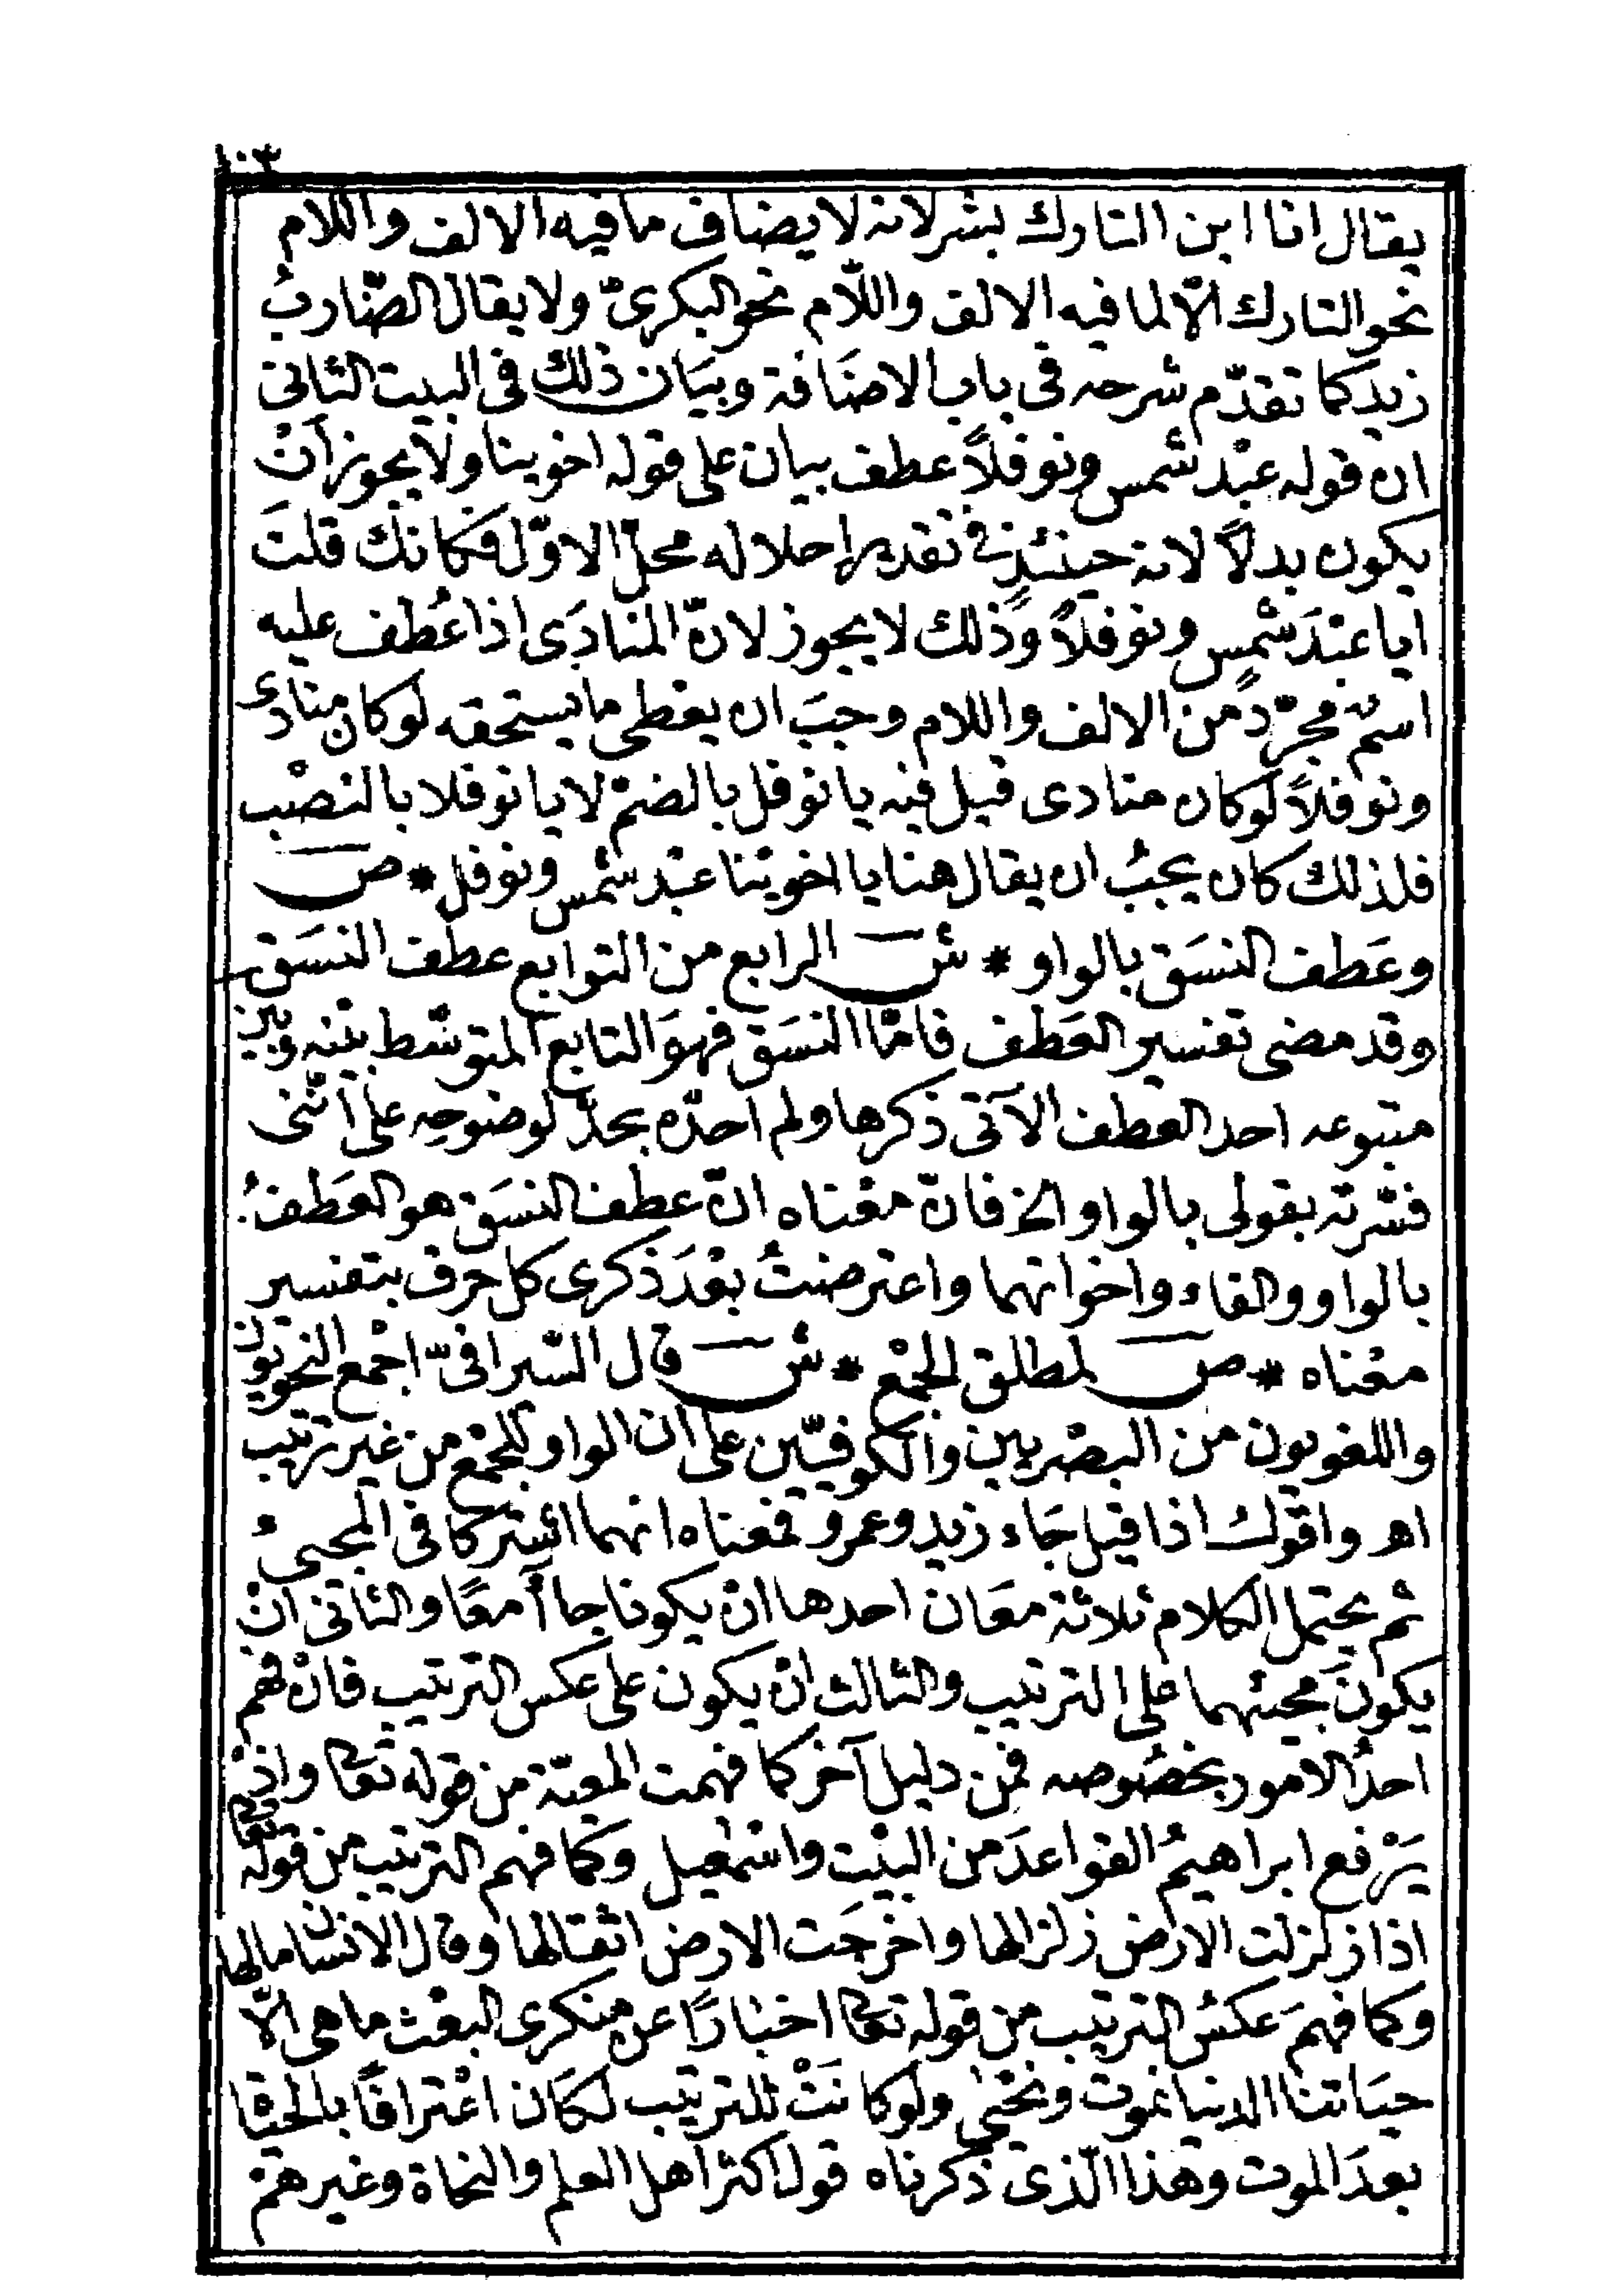 ١٠٣
يقال انا ابن التارك بشر لانه لا يضاف ما فيه الالف واللام
نحو التارك الّا لما فيه الالف واللّام نحو البكرىّ ولا يقال الضّاربُ
زيد كما تقدّم شرحه فى باب الاضَافة وبيَان ذلك فى البيت الثانى
ان قوله عبْد شمس ونوفلاً عطف بيان على قوله اخوينا ولا يجوز انْ
يكون بدلاً لانه حينئذٍ فى تقدير احلاله محلّ الاوّل فكانك قلتَ
ايا عبْدَ شمسٍ ونوفلاً وذلك لا يجوز لانّ المنادَى اذا عُطف عليه
اسمٌ مجرّدٌ من الالف واللام وجبَ ان يعْطى ما يستحقه لو كان منادى
ونوفلاً لو كان منادى قيل فيه يا نوفل بالضمْ لا يا نوفلا بالنصْب
فلذلك كان يجبُ ان يقال هنا يا اخويْنا عبْد شمس ونوفل * ص
وعَطف النسَق بالواو * ش الرابع من التوابع عطف النسَق
وقد مضى تفسير العَطف فامّا النسَق فهوَ التابع المتوسّط بيْنه وبين
متبوعه احد العطف الآتى ذكرها ولم احدّه بحدّ لوضوحِه على انّنى
فسّرته بقولى بالواو الخ فانّ معْناه انّ عطف النسَق هو العَطفُ
بالواو والفاء واخواتهما واعترضتُ بعْدَ ذكرى كل حرف بتفسير
معْناه * ص لمطلق الجمْع * ش قال السّيرافىّ اجْمع النحويون
واللغويون من البصْريين والكوفيّين على ان الواو للجمْع من غير ترتيب
اه واقول اذا قيل جَاء زيد وعمرو فمعناه انهما اشتركا فى المجىءُ
ثم يحتمل الكلام ثلاثة معَان احدها انْ يكونا جاآ معًا والثانى انْ
يكونَ مجيئهما على الترتيب والثالث انْ يكون على عكس الترتيب فانْ فهم
احدُ الامور بخصُوصه فمن دليل آخر كما فهمت المعيّة من قوله تعا واذْ
يَرْفع ابراهيمُ القواعدَ من البيْت واسْمعيل وكما فهم الترتيب من قوله تعا
اذا زلزلت الارض زلزالها واخرجَت الارض اثقالها وقال الانسان ما لها
وكما فهمَ عكسُ الترتيب من قوله تعا اخبارًا عن منكرى البعْث ما هى الّا
حيَاتنا الدنيا نموت ونحْيى ولو كانَتْ للترتيب لكَان اعْترافًا بالحيَاة
بعدَ الموت وهذا الّذى ذكرناه قول اكثر اهل العلم والنحاة وغيرهمْ